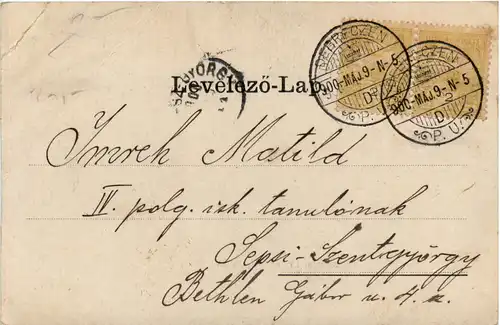 DEBRECZEN DEBRECZEN
900-MAJ 9-N-5 900-MAJ 9-N-5
D. D.
P. U. P. U.
Levelező-Lap
Imreh Matild
IV. polg. isk. tanulónak
Sepsi-Szentgyörgy
Bethlen Gábor u. 4. sz.